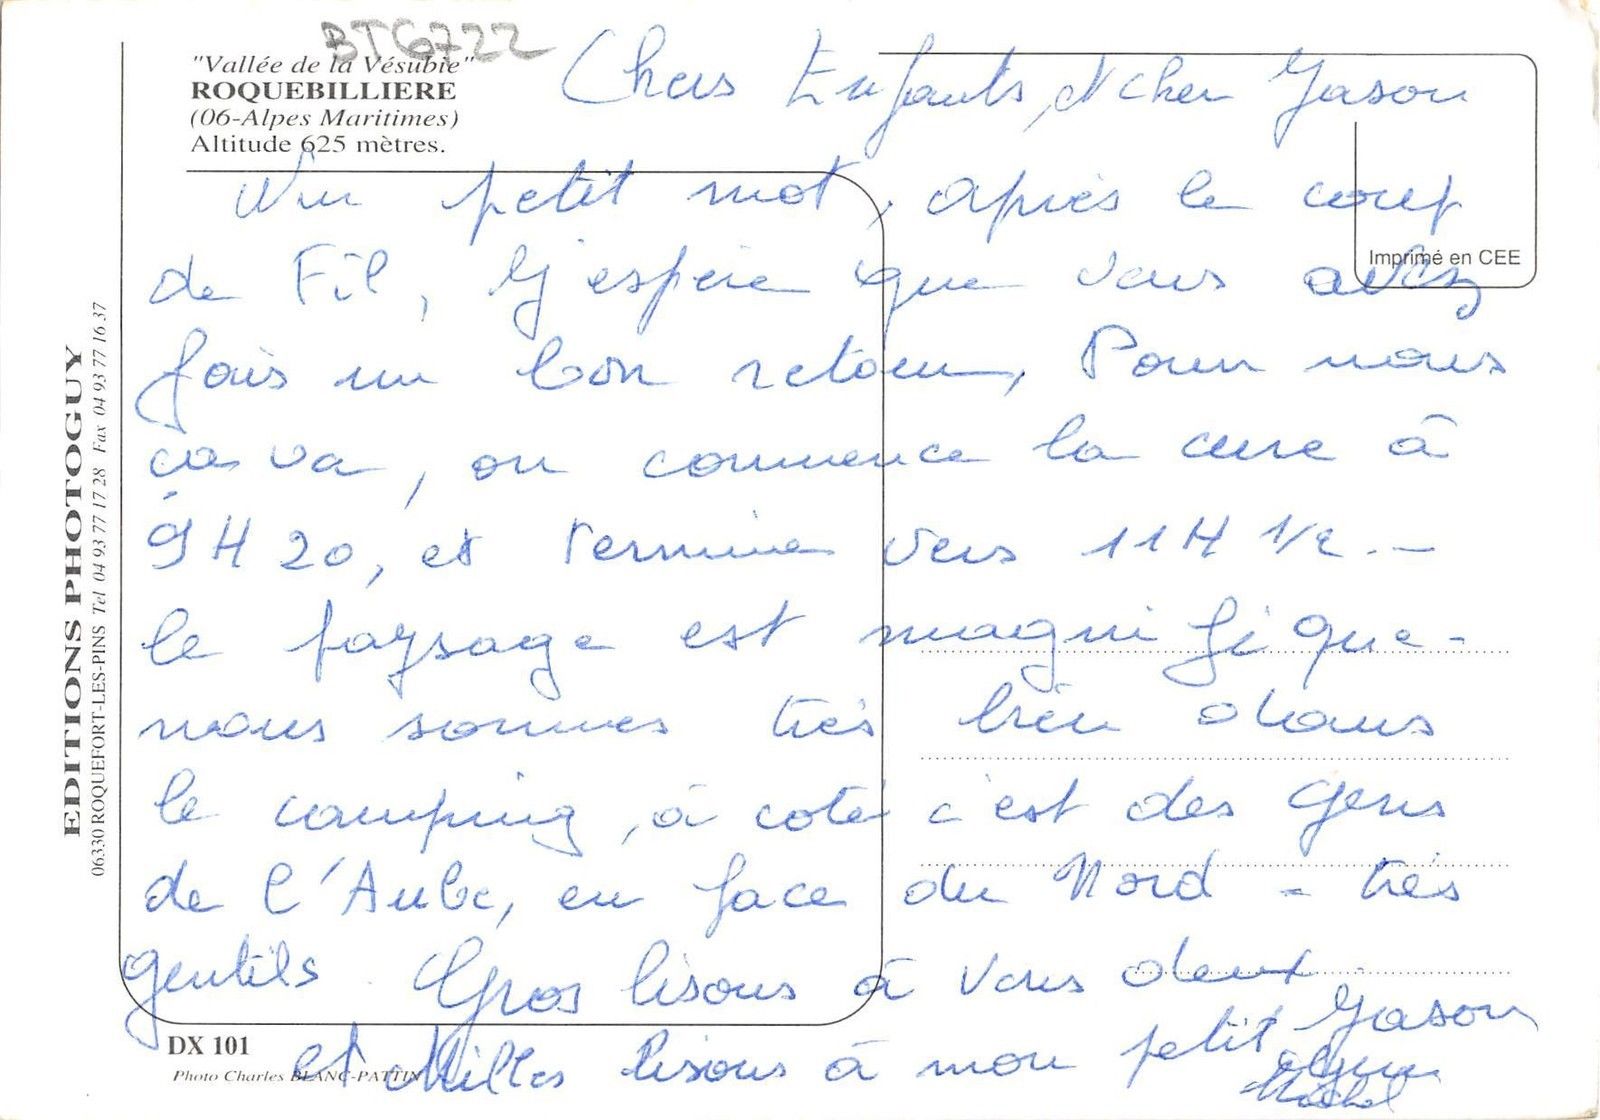 BTG722
"Vallée de la Vésubie"
ROQUEBILLIERE
(06-Alpes Maritimes)
Altitude 625 mètres.
Imprimé en CEE
Chers Enfants, et cher Jason
Un petit mot, après le coup
de Fil, J'espère que vous avez
fais un bon retour, Pour nous
ça va, on commence la cure à
9H20, et termine vers 11H 1/2.-
le paysage est magnifique-
nous sommes très bien dans
le camping, à coté c'est des gens
de l'Aube, en face du Nord - très
gentils. Gros bisous à vous deux
et Milles bisous à mon petit Jason
Michel
EDITIONS PHOTOGUY
06330 ROQUEFORT-LES-PINS Tel 04 93 77 17 28 Fax 04 93 77 16 37
DX 101
Photo Charles BLANC-PATTIN